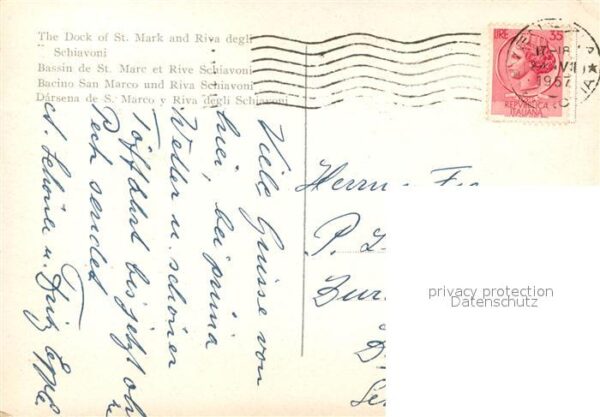 The Dock of St. Mark and Riva degli
Schiavoni
Bassin de St. Marc et Rive Schiavoni
Bacino San Marco und Riva Schiavoni
Dársena de S. Marco y Riva degli Schiavoni
LIRE 35
REPVBBLICA
ITALIANA
17-18
1957
Viele Grüsse von
hier, bei prima
Wetter u. schöner
Töfffahrt bis jetzt oh
Pech sendet
Fritz
Herrn
P.
Zur
privacy protection
Datenschutz